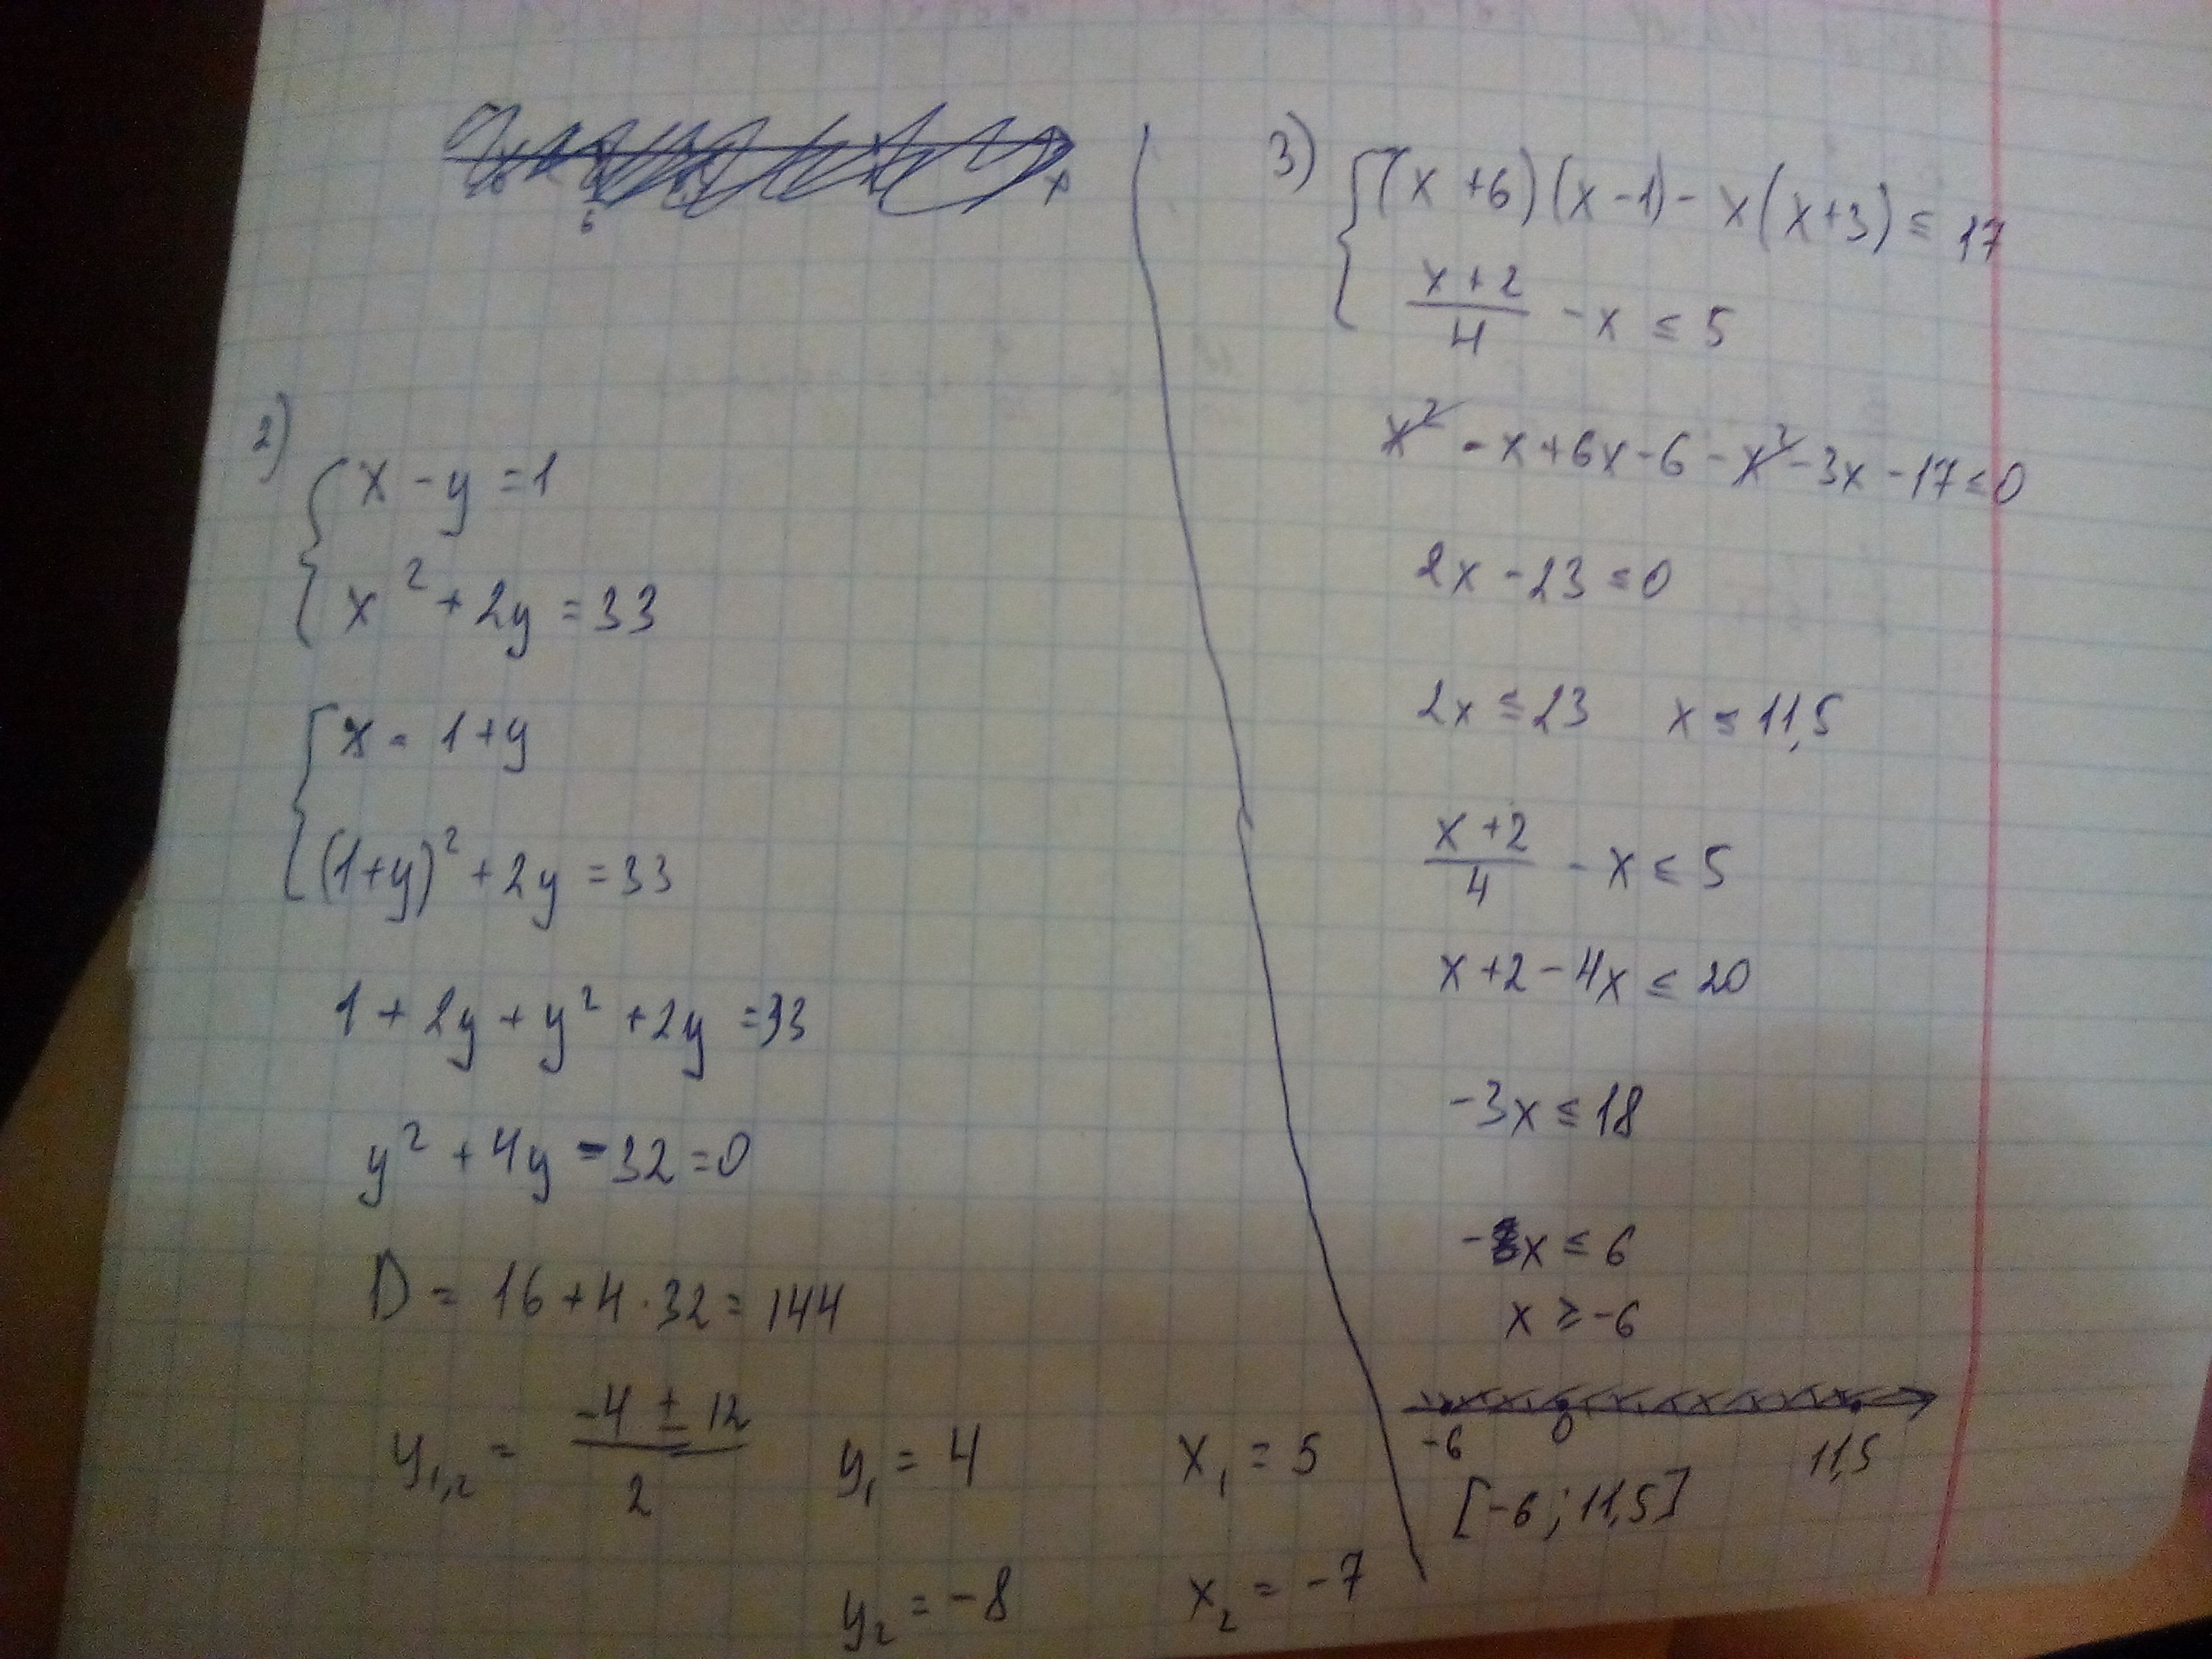 6 x
2)
x - y = 1
x² + 2y = 33
x = 1 + y
(1+y)² + 2y = 33
1 + 2y + y² + 2y = 33
y² + 4y - 32 = 0
D = 16 + 4 · 32 = 144
y₁,₂ = (-4 ± 12)/2 y₁ = 4 x₁ = 5
y₂ = -8 x₂ = -7
3) (x + 6)(x - 1) - x(x + 3) ≤ 17
(x + 2)/4 - x ≤ 5
x² - x + 6x - 6 - x² - 3x - 17 ≤ 0
2x - 23 ≤ 0
2x ≤ 23 x ≤ 11,5
(x + 2)/4 - x ≤ 5
x + 2 - 4x ≤ 20
-3x ≤ 18
-x ≤ 6
x ≥ -6
-6 0 11,5
[-6; 11,5]